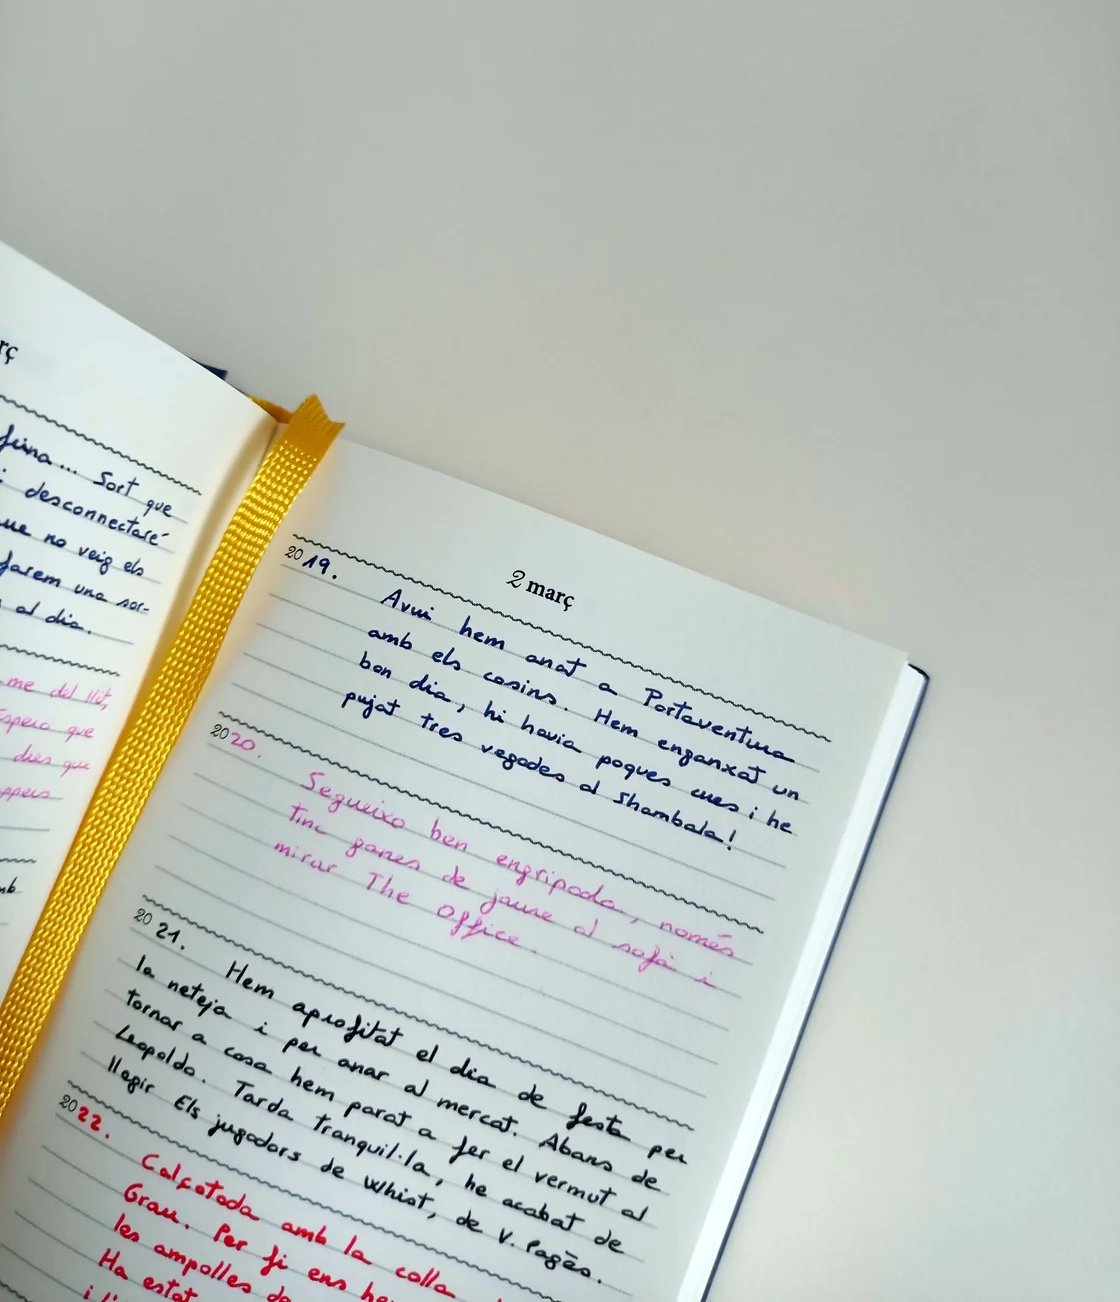 rç
feina... Sort que
desconnectaré
que no veig els
farem una sor-
al dia.
me del llit,
Espero que
dies que
mb
2 març
2019.
Avui hem anat a Portaventura
amb els cosins. Hem enganxat un
bon dia, hi havia poques cues i he
pujat tres vegades al Shambala!
2020.
Segueixo ben engripada, només
tinc ganes de jaure al sofà i
mirar The Office.
2021.
Hem aprofitat el dia de festa per
la neteja i per anar al mercat. Abans de
tornar a casa hem parat a fer el vermut al
Leopoldo. Tarda tranquil·la, he acabat de
llegir Els jugadors de Whist, de V. Pagès.
2022.
Calçotada amb la colla
Grau. Per fi ens he
les ampolles de
Ha estat
i l'